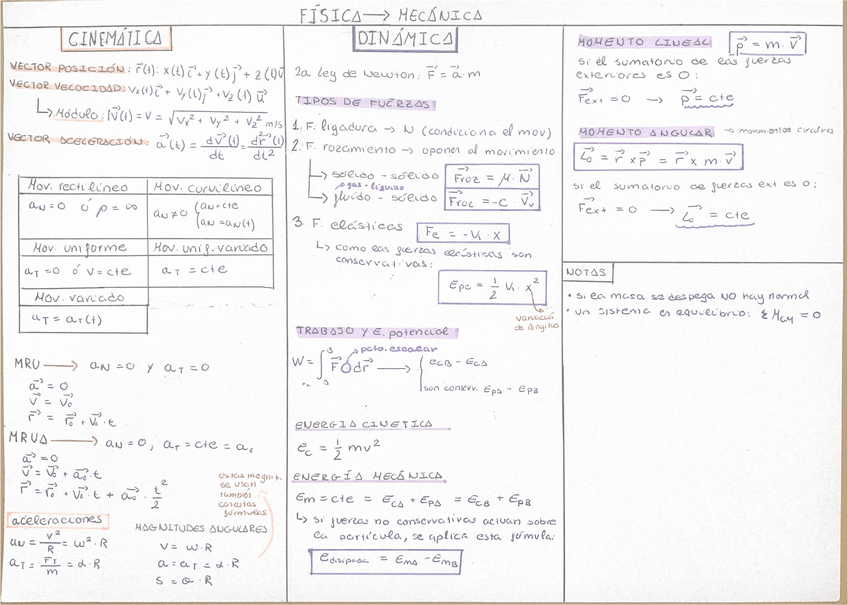 FÍSICA → MECÁNICA
CINEMÁTICA
VECTOR POSICIÓN: r⃗(t): x(t)i⃗ + y(t)j⃗ + z(t)u⃗
VECTOR VELOCIDAD: Vx(t)i⃗ + Vy(t)j⃗ + Vz(t) u⃗
↳ Módulo: |V⃗(t)| = V = √(Vx² + Vy² + Vz²) m/s
VECTOR ACELERACIÓN: a⃗(t) = dV⃗(t)/dt = d²r⃗(t)/dt²
Mov. rectilíneo | Mov. curvilíneo
aN = 0 ó ρ = ∞ | aN ≠ 0 { aN = cte
aN = aN(t)
Mov. uniforme | Mov. unif. variado
aT = 0 ó v = cte | aT = cte
Mov. variado
aT = aT(t)
MRU → aN = 0 y aT = 0
a⃗ = 0
v⃗ = v⃗₀
r⃗ = r⃗₀ + v⃗₀ · t
MRUA → aN = 0, aT = cte = a₀
a⃗ = 0
v⃗ = v⃗₀ + a⃗₀ · t
r⃗ = r⃗₀ + v⃗₀ · t + a⃗₀ · t²/2
estas magnit.
se usan
también
con estas
fórmulas
aceleraciones
aN = v²/R = ω² · R
aT = FT/m = α · R
MAGNITUDES ANGULARES
v = ω · R
a = aT = α · R
S = θ · R
DINÁMICA
2a Ley de Newton: F⃗ = a⃗ · m
TIPOS DE FUERZAS
1. F. ligadura → N (condiciona el mov)
2. F. rozamiento → oponen al movimiento
↳ sólido - sólido F⃗roz = μ · N⃗
o gas - líquido
↳ fluido - sólido F⃗roz = -c · V⃗v
3. F. elásticas Fe = -k · x
↳ como las fuerzas elásticas son
conservativas:
Epe = 1/2 k · x²
variació
de longitud
TRABAJO Y E. potencial
pdto. escalar
W = ∫ F⃗ O dr⃗ → { ECB - ECA
son conserv. EPA - EPB
ENERGÍA CINÉTICA
Ec = 1/2 mv²
ENERGÍA MECÁNICA
Em = cte = ECA + EPA = ECB + EPB
↳ si fuerzas no conservativas actuan sobre
la partícula, se aplica esta fórmula:
Edisipada = EmA - EmB
MOMENTO LINEAL p⃗ = m · v⃗
si el sumatorio de las fuerzas
exteriores es 0:
F⃗ext = 0 → p⃗ = cte
MOMENTO ANGULAR → movimientos circulares
L⃗₀ = r⃗ × p⃗ = r⃗ × m · v⃗
si el sumatorio de fuerzas ext es 0:
F⃗ext = 0 → L⃗₀ = cte
NOTAS
• si la masa se despega NO hay normal
• un sistema es equilibrio: ΣMCM = 0